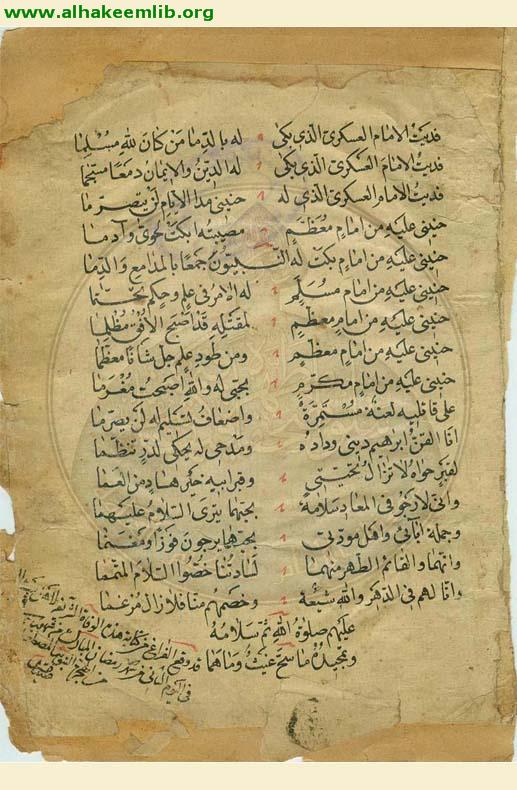 www.alhakeemlib.org
فديت الامام العسكري الذي بكى له بالدما من كان لله مسلما
فديت الامام العسكري الذي بكى له الدين والايمان دمعا مسجما
فديت الامام العسكري الذي له حنيني مدا الايام لن يتصرما
حنيني عليه من امام معظم مصيبته ابكت لحوى وآدما
حنيني عليه من امام بكت له النبيون جمعا بالمدامع والدما
حنيني عليه من امام مسلم له الامر في علم وحكم
حنيني عليه من امام معظم لمقتله قد اصبح الافق مظلما
حنيني عليه من امام معظم ومن طود علم جل شانا معظما
حنيني عليه من امام مكرم بحبي له والله اصبحت مغرما
على قاتليه لعنة مستمرة واضعاف تسليم له لن يصرما
انا القن ابرهيم ديني وداده ومدحي له يحكي لدر تنظما
لقبر حواه لا تزال تحيتي وقبر ابيه خير هاد من العما
واني لارجو في المعاد سلامة بحبهما يترى السلام عليهما
وجملة ابائي واهل مودتي بحبهما يرجون فوزا ومغنما
وانهما والقائم الطهر منهما لسادتنا خصوا السلام
وانا لهم في الدهر والله شيعة وخصمهم منا فلا زال مرغما
عليهم صلوة الله ثم سلامه
وتمجيده ما سح غيث وما هما
قد وقع الفراغ من كتابة هذه الوفاة
في شهر رمضان المبارك
في اليوم الثاني من الهجرة النبوية